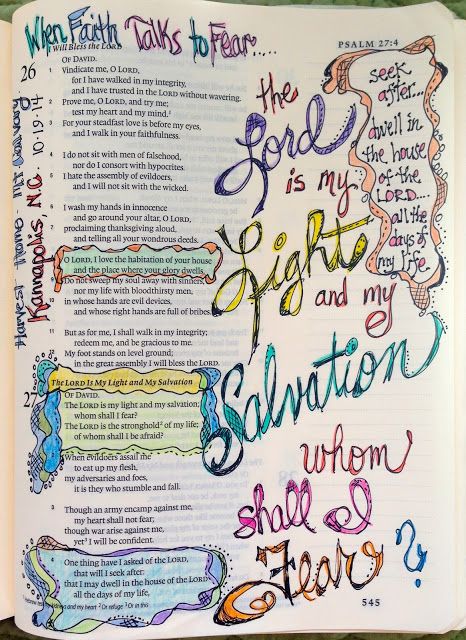 When Faith Talks to Fear....
I Will Bless the LORD
PSALM 27:4
26
OF DAVID.
1 Vindicate me, O LORD,
for I have walked in my integrity,
and I have trusted in the LORD without wavering.
2 Prove me, O LORD, and try me;
test my heart and my mind.²
3 For your steadfast love is before my eyes,
and I walk in your faithfulness.
4 I do not sit with men of falsehood,
nor do I consort with hypocrites.
5 I hate the assembly of evildoers,
and I will not sit with the wicked.
6 I wash my hands in innocence
and go around your altar, O LORD,
7 proclaiming thanksgiving aloud,
and telling all your wondrous deeds.
8 O LORD, I love the habitation of your house
and the place where your glory dwells.
9 Do not sweep my soul away with sinners,
nor my life with bloodthirsty men,
10 in whose hands are evil devices,
and whose right hands are full of bribes.
11 But as for me, I shall walk in my integrity;
redeem me, and be gracious to me.
12 My foot stands on level ground;
in the great assembly I will bless the LORD.
The LORD Is My Light and My Salvation
27
OF DAVID.
The LORD is my light and my salvation;
whom shall I fear?
The LORD is the stronghold² of my life;
of whom shall I be afraid?
2 When evildoers assail me
to eat up my flesh,
my adversaries and foes,
it is they who stumble and fall.
3 Though an army encamp against me,
my heart shall not fear;
though war arise against me,
yet³ I will be confident.
4 One thing have I asked of the LORD,
that will I seek after:
that I may dwell in the house of the LORD
all the days of my life,
and my heart ² Or refuge ³ Or in this
Harvest Home - Mt Calvary
Kannapolis, N.C. 10-19-14
the
Lord
is my
Light
and my
Salvation
whom
shall I
Fear?
seek
after...
dwell in
the house
of the
LORD....
all the
days of
my life
545